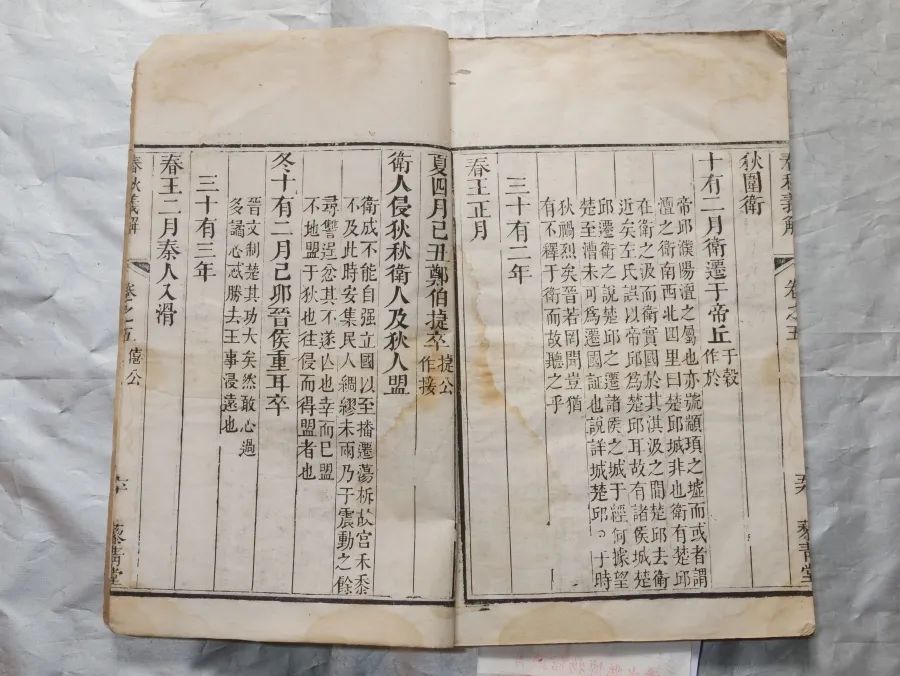 春秋義解 卷之五 藜青堂
狄圍衛
十有二月衛遷于帝丘 于穀
作於
帝邱濮陽澶之屬也亦號顓頊之墟而或者謂
澶之衛南西北四里曰楚邱城非也衛有楚邱
在衛之汲而衛實國於其淇汲之間楚邱去衛
近矣左氏誤以帝邱爲楚邱耳故有諸侯城楚
邱遷衛之說楚邱之遷諸侯之城于經何據望
楚至漕未可爲遷國証也說詳城楚邱。于時
狄禍烈矣晉若罔聞豈猶
有不釋于衛而故聽之乎
三十有二年
春王正月
夏四月己丑鄭伯捷卒 捷公
作接
衛人侵狄秋衛人及狄人盟
衛成不能自强立國以至播遷蕩柝故宮禾黍
不及此時安集民人綢繆未雨乃于震動之餘
尋讐逞忿其不遂凶也幸而巳盟
不地盟于狄也往侵而得盟者也
冬十有二月己卯晉侯重耳卒
晉文制楚其功大矣然敢心過
多譎心忒勝去王事浸遠也
三十有三年
春王二月秦人入滑
春秋義解 卷之五 僖公 藜青堂